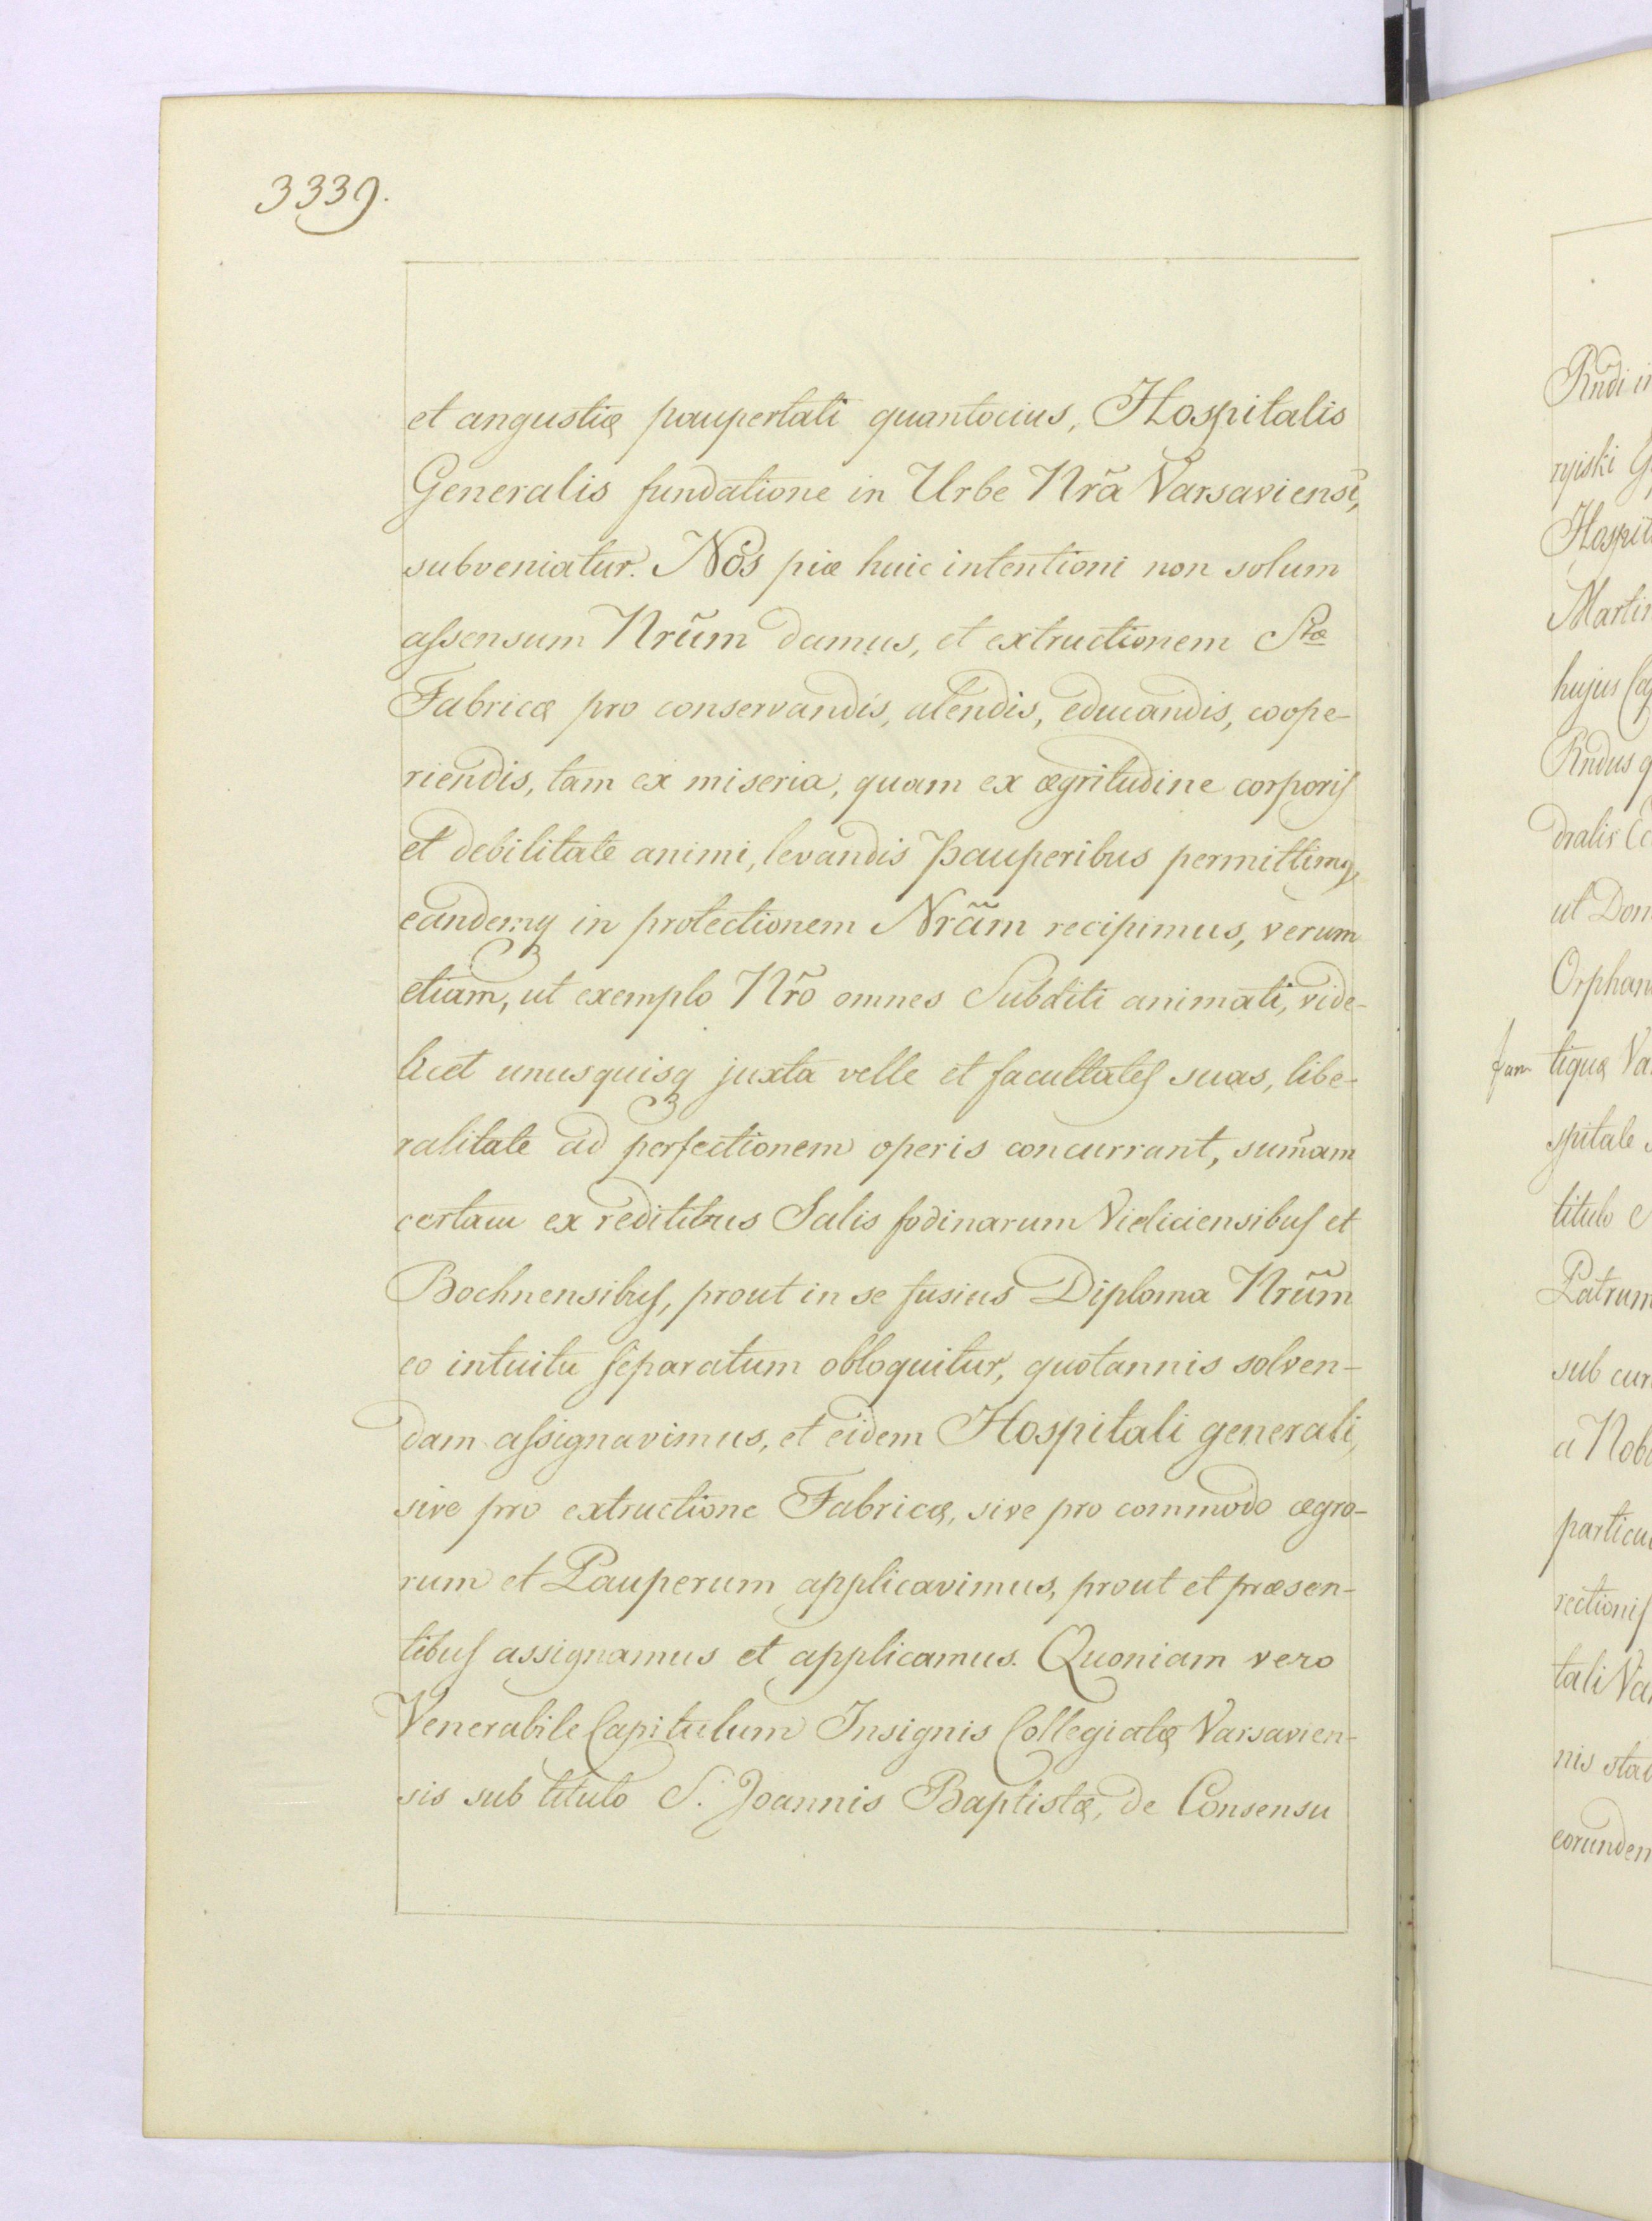 3339.
et angustiæ paupertati quantocius, Hospitalis
Generalis fundatione in Urbe Nrã Varsaviensi,
subveniatur. Nos piæ huic intentioni non solum
assensum Nrũm damus, et extructionem Stæ
Fabricæ pro conservandis, alendis, educandis, coope-
riendis, tam ex miseria, quam ex ægritudine corporis
et debilitate animi, levandis pauperibus permittimq,
eandemq in protectionem Nrãm recipimus, verum
etiam, ut exemplo Nrõ omnes Subditi animati, vide-
licet unusquisq juxta velle et facultates suas, libe-
ralitate ad perfectionem operis concurrant, sum̃am
certam ex reditibus Salis fodinarum Vieliciensibus et
Bochnensibus, prout in se fusius Diploma Nrũm
eo intuitu separatum obloquitur, quotannis solven-
dam assignavimus, et eidem Hospitali generali,
sive pro extructione Fabricæ, sive pro commodo ægro-
rum et Pauperum applicavimus, prout et præsen-
tibus assignamus et applicamus. Quoniam vero
Venerabile Capitulum Insignis Collegiatæ Varsavien-
sis sub titulo S. Joannis Baptistæ, de Consensu
Rndi
Hospit
Martin
hujus
Rndus
dralis
ut Dom
Orphan
tiquæ Va
spitale
titulo
Patrum
sub cur
a Nob
particu
rectionis
tali Var
nis stab
eorundem